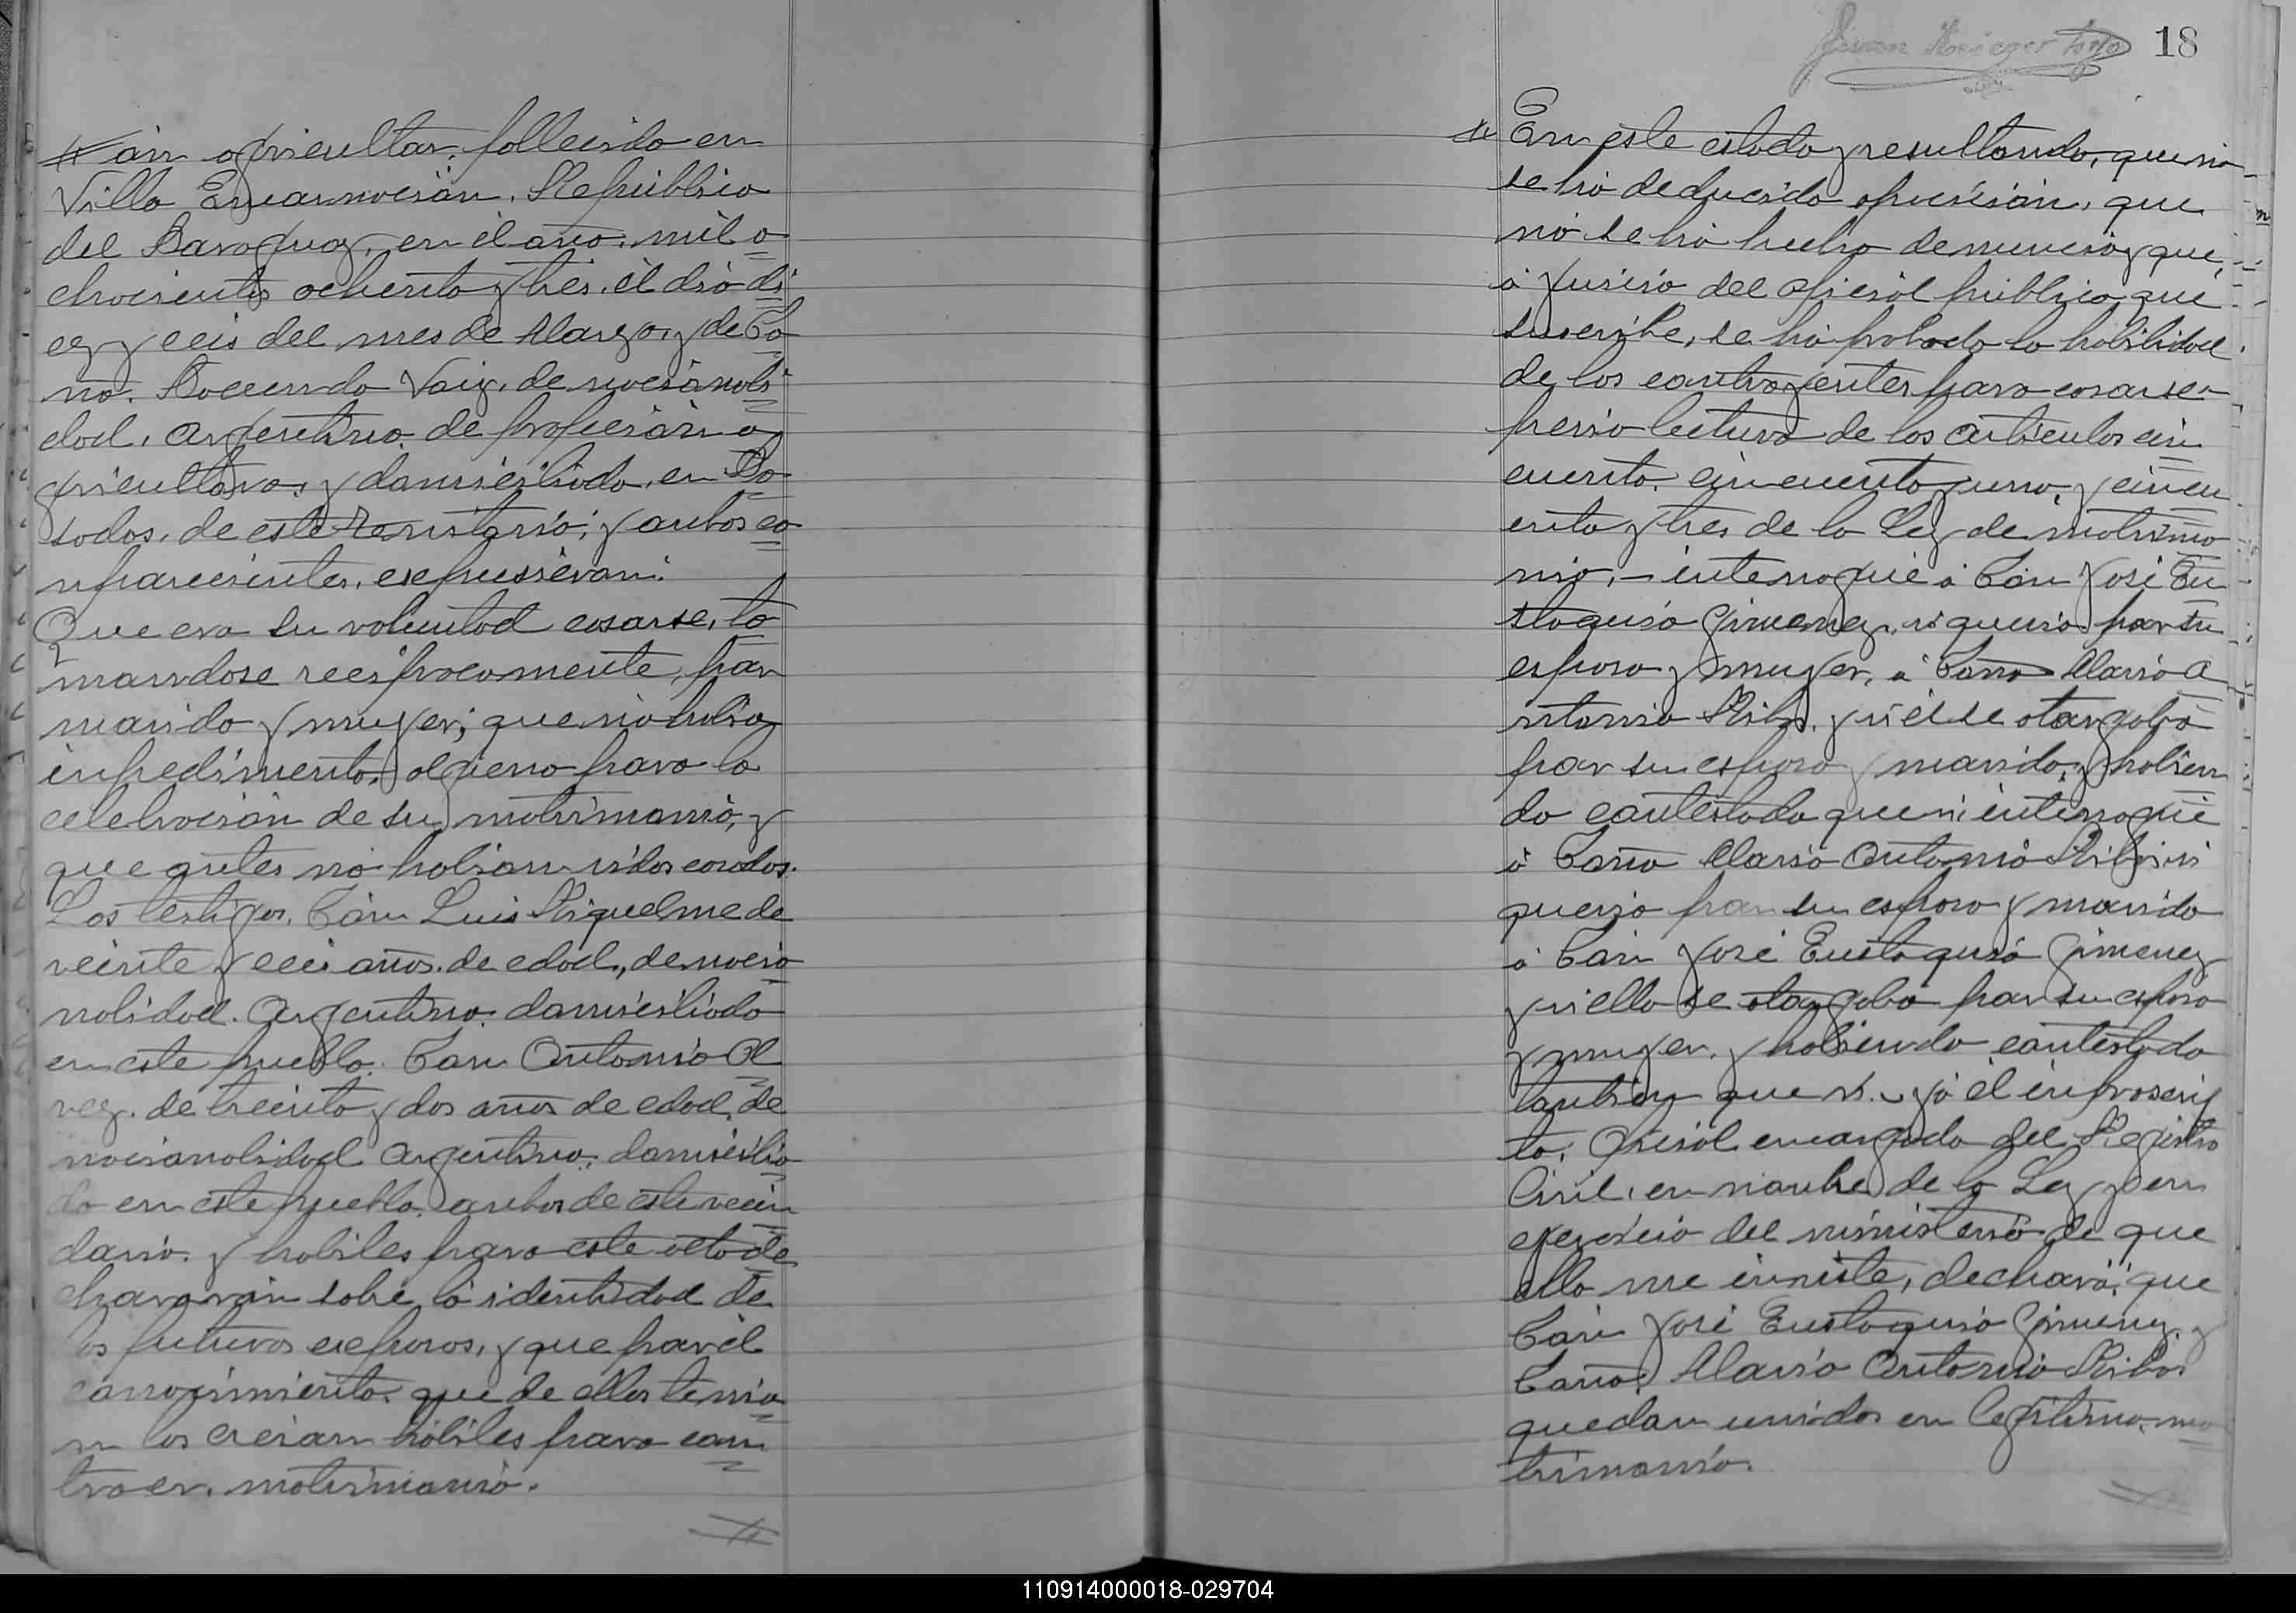 ón agricultor, fallecido en
Villa Encarnación, República
del Paraguay, en él año, mil o
chocientos ochenta y tres, él dia di
ez y ceis del mes de Marzo, y de Do
ña. Rocenda Vaiz, de nacionali
dad, argentina, de profeción a
gricultora, y domiciliada, en Po
sadas, de este Territorio; y ambos co
mparecientes, expresaron:
Que era su voluntad casarse, to
mandose reciprocamente, por
marido y muger; que no habia
inpedimento, alguno para la
celebración de su matrimonio, y
que antes no habian sidos casados.
Los testigos, Don Luis Riquelme de
veinte y ceis años de edad, de nacio
nalidad Argentino, domiciliado
en este pueblo. Don Antonio Al
vez, de treinta y dos años de edad, de
nacionalidad Argentino, domicilia
do en este pueblo, ambos de este vecin
dario, y habiles para este acto de
clararon sobre la identidad de
los futuros exposos, y que por él
conocimiento, que de ellos tenia
n los creian habiles para con
traer, matrimonio.
18
En este estado y resultando, que no
se há deducido oposición, que
no se há hecho denuncia y que,
á juicio del oficial público que
suscribe, se há probado la habilidad
de los contrayentes para casarse
previo lectura de los articulos cin
cuenta, cincuenta y uno, y cincu
enta y tres de la Ley de matrimo
nio, – interrogué á Don José Eu
staquio Gimenez, si queria por su
esposa y muger, á Doña Maria A
ntonia Ribas, y si él se otorgaba
por su esposo y marido, y habien
do contestado que si interrogué
á Doña Maria Antonia Ribas si
queria por su esposo y marido
á Don José Eustaquio Gimenez
y si ella se otorgaba por su esposa
y muger, y habiendo contestado
tambien que si. – yó él infrascrip
to, Oficial encargado del Registro
Civil, en nombre de la Ley y en
egercicio del ministerio de que
ella me inviste, declaró, que
Don José Eustaquio Gimenez, y
Doña, Maria Antonia Ribas
quedan unidos en legitimo, ma
trimonio.
110914000018-029704